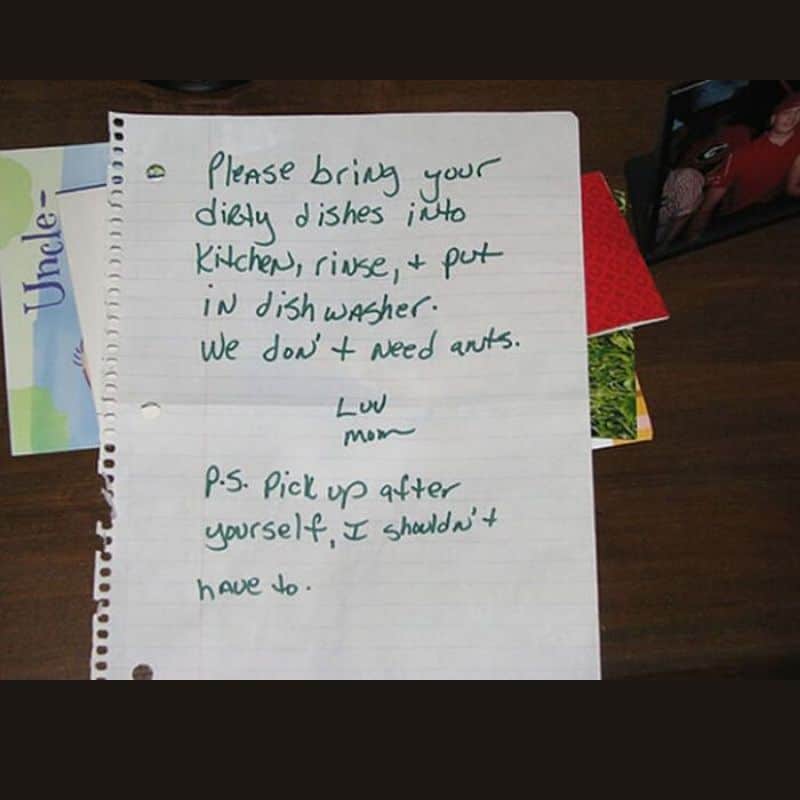 Uncle-
Please bring your
dirty dishes into
Kitchen, rinse, + put
in dish washer.
We don't need ants.
Luv
mom
P.S. Pick up after
yourself, I shouldn't
have to.